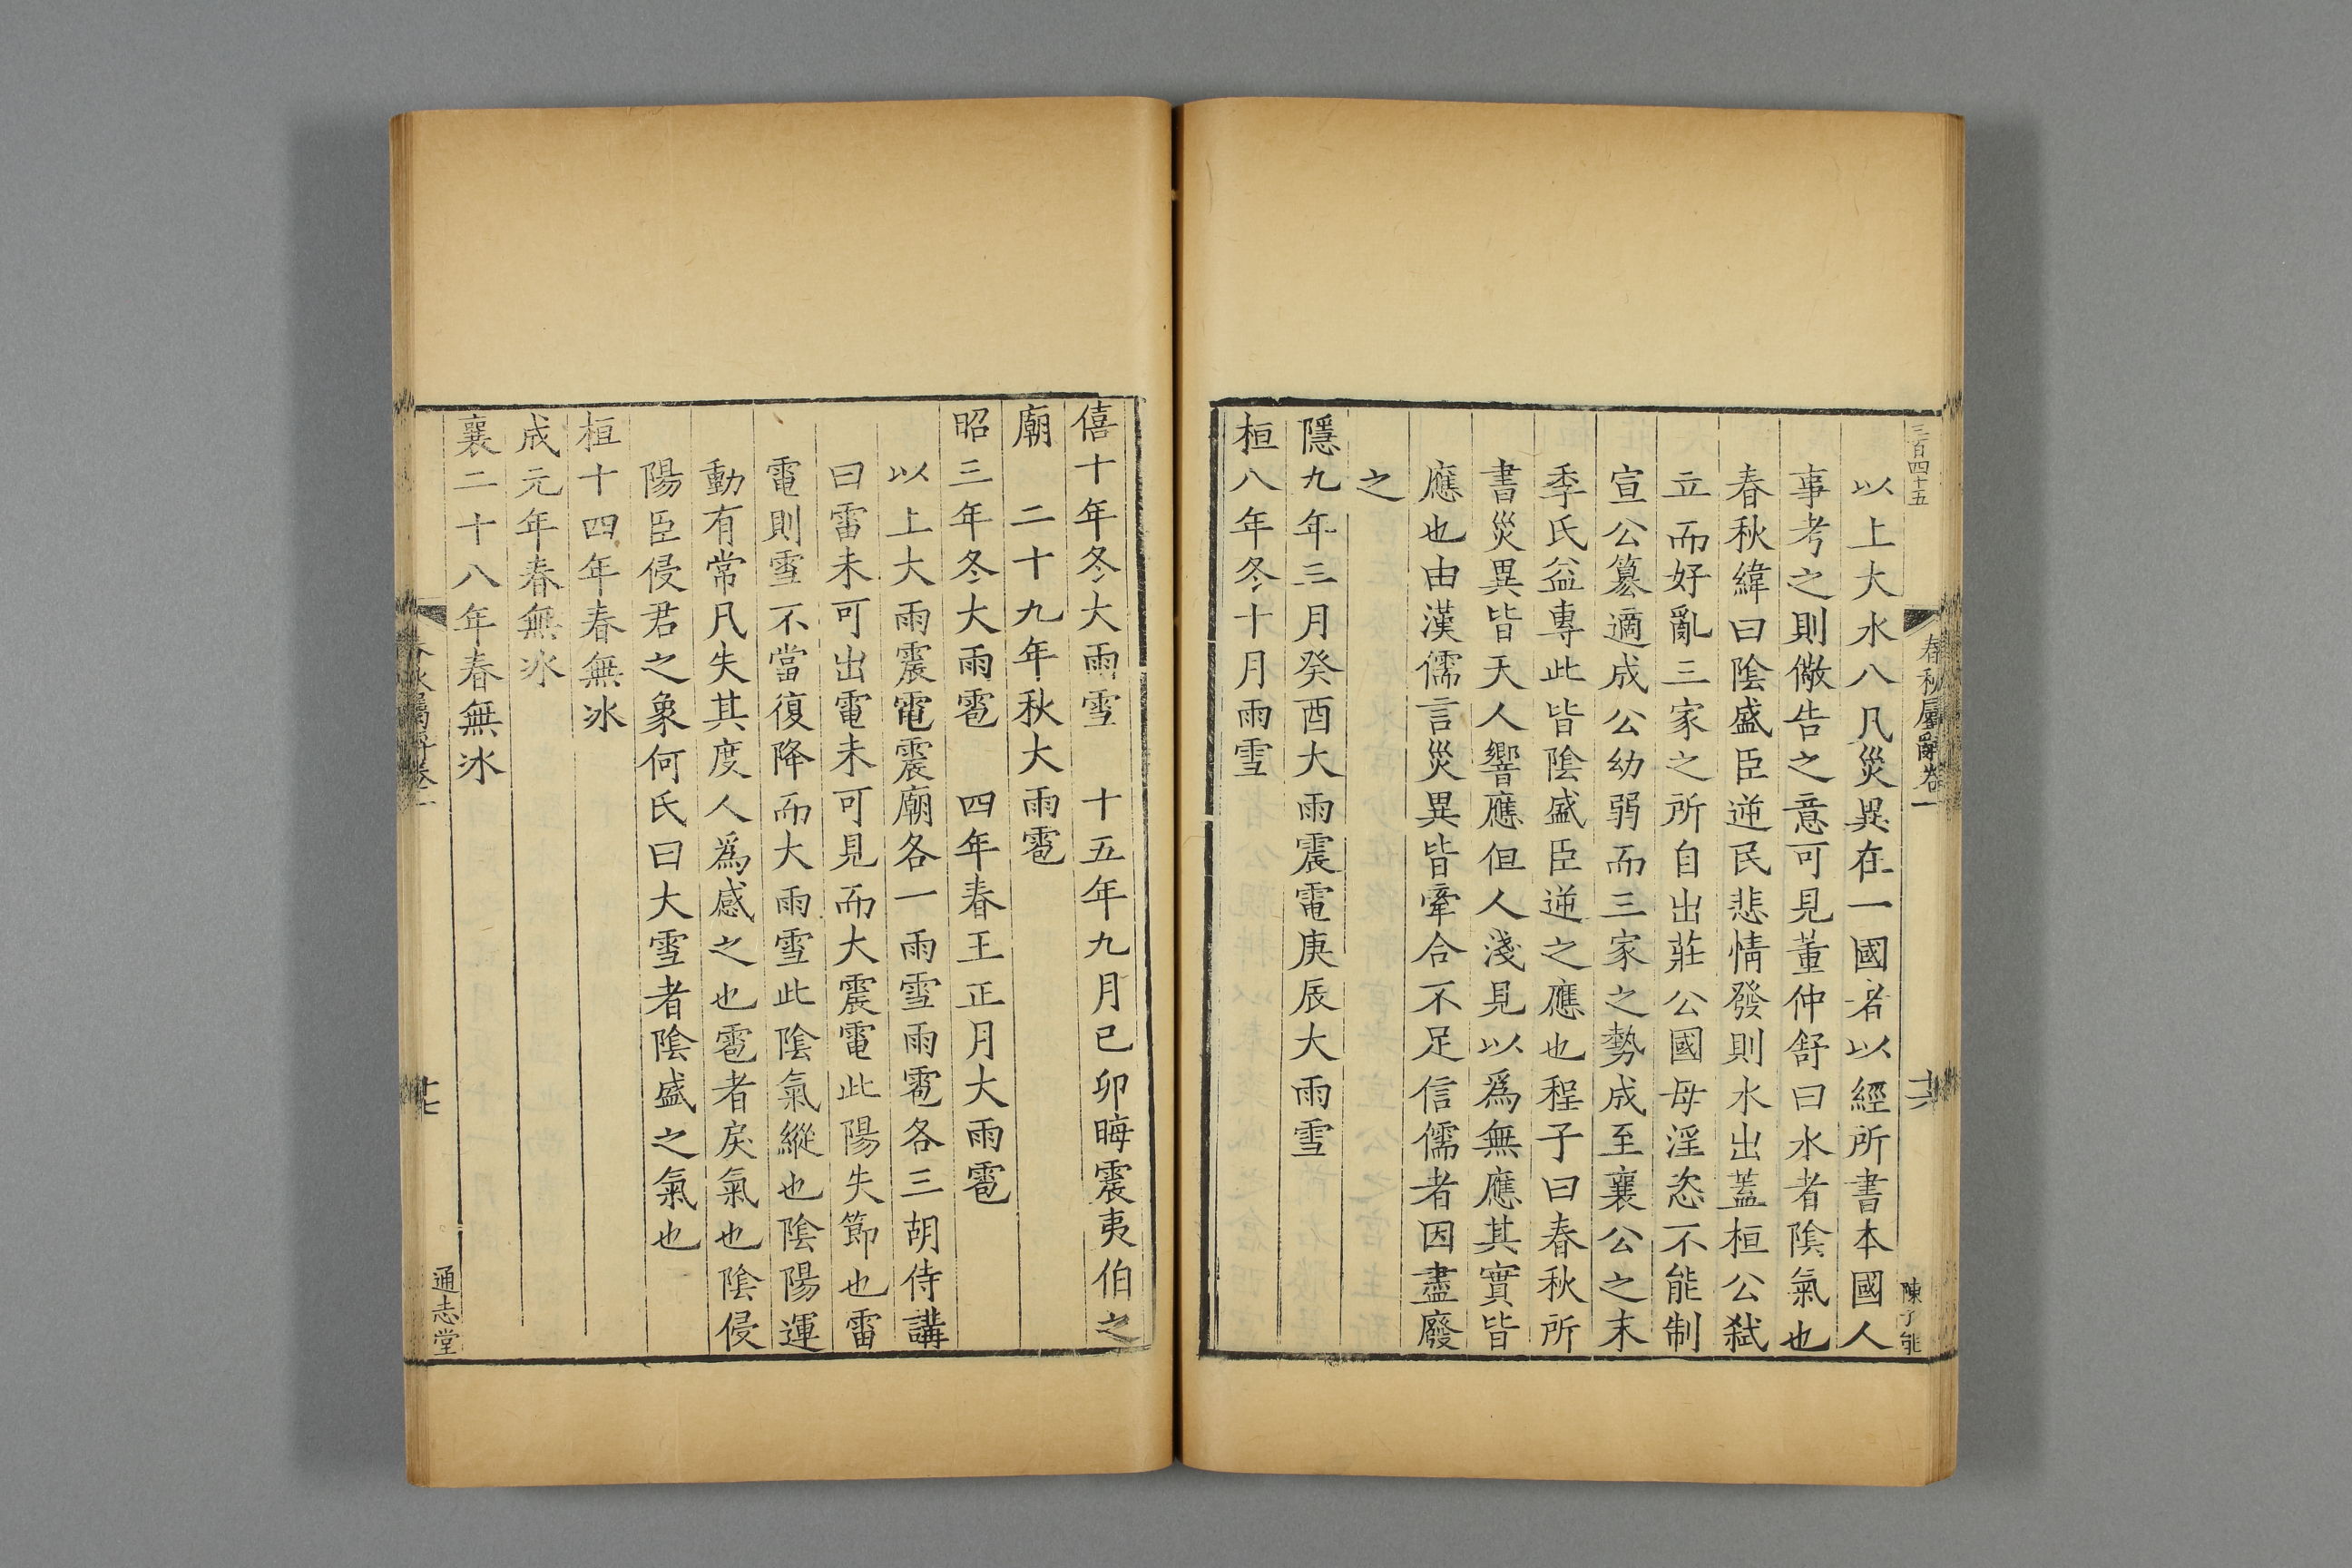 三百四十五
春秋屬辭卷一
十六
以上大水八凡災異在一國者以經所書本國人
事考之則儆告之意可見董仲舒曰水者陰氣也
春秋緯曰陰盛臣逆民悲情發則水出蓋桓公弑
立而好亂三家之所自出莊公國母淫恣不能制
宣公簒適成公幼弱而三家之勢成至襄公之末
季氏益專此皆陰盛臣逆之應也程子曰春秋所
書災異皆天人響應但人淺見以爲無應其實皆
應也由漢儒言災異皆牽合不足信儒者因盡廢
之
隱九年三月癸酉大雨震電庚辰大雨雪
桓八年冬十月雨雪
僖十年冬大雨雪　十五年九月己卯晦震夷伯之
廟　二十九年秋大雨雹
昭三年冬大雨雹　四年春王正月大雨雹
以上大雨震電震廟各一雨雪雨雹各三胡侍講
曰雷未可出電未可見而大震電此陽失節也雷
電則雪不當復降而大雨雪此陰氣縱也陰陽運
動有常凡失其度人爲感之也雹者戾氣也陰侵
陽臣侵君之象何氏曰大雪者陰盛之氣也
桓十四年春無冰
成元年春無冰
襄二十八年春無冰
十七
通志堂